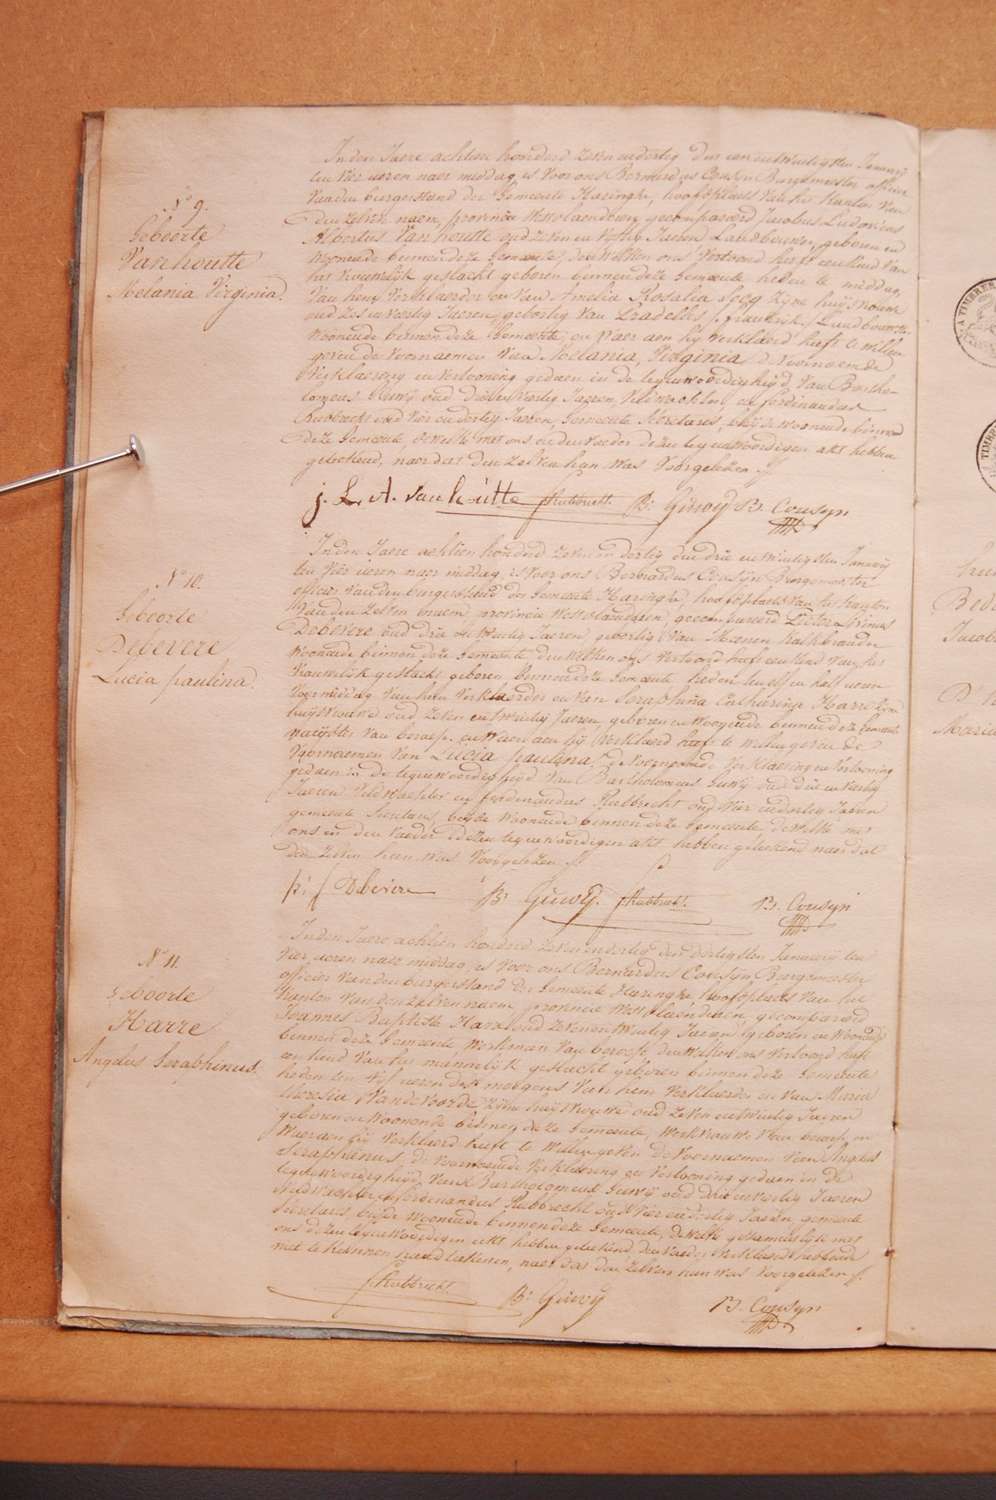 N° 9.
Geboorte
Vanhoutte
Melania Virginia
In den Jaere achtien honderd zeven en dertig den een en twintigsten Januarij
ten vier ueren naer middag, is voor ons Bernardus Cousyn Burgemeester officier
van den burgerstand der Gemeente Haringhe, hoofdplaets van het kanton van
den zelven naem, provincie Westvlaenderen, gecompareerd Jacobus Ludovicus
Albertus Vanhoutte oud zeven en veertig Jaeren Landbouwer, geboren en
woonende binnen deze Gemeente, den welken ons vertoond heeft een kind van
het vrouwelijk geslacht geboren binnen deze Gemeente heden te middag,
van hem verklaerder en van Amelia Rosalia zijne huijsvrouw
oud zes en veertig Jaeren, geboortig van frankrijk, Landbouwster
woonende binnen deze Gemeente, en waer aen hij verklaerd heeft te willen
geven de voornaemen van Melania, Virginia de voornoemde
verklaering en vertooning gedaen in de tegenwoordigheijd van Bartho-
lomeus Guwij oud drie en veertig Jaeren, veldwachter, en ferdinandus
Rubbrecht oud vier en dertig Jaeren, Gemeente Secretaris, beijde woonende binnen
deze Gemeente de welke met ons en den vaeder dezen tegenwoordigen akt hebben
geteekend, naer dat den zelven hun was voorgelezen
j. L. A. vanhoutte fRubbrecht Bs Guwij B. Cousyn
N° 10.
Geboorte
Debevere
Lucia paulina.
In den Jaere achtien honderd zeven en dertig den drie en twintigsten Januarij
ten vier ueren naer middag, is voor ons Bernardus Cousijn Burgemeester
officier van den burgerstand der Gemeente Haringhe, hoofdplaets van het kanton
van den zelven naem, provincie Westvlaenderen, gecompareerd
Debevere oud drie en twintig Jaeren, geboortig van
woonende binnen deze Gemeente den welken ons vertoond heeft een kind van het
vrouwelijk geslacht geboren binnen deze Gemeente heden ten elf en half ueren
voormiddag van hem verklaerder en van Seraphina Catharina Harre zyne
huijsvrouwe oud zeven en twintig Jaeren, geboren en woonende binnen deze Gemeente
van beroep, en waer aen hij verklaerd heeft te willen geven de
voornaemen van Lucia paulina, de voornoemde verklaering en vertooning
gedaen in de tegenwoordigheijd van Bartholomeus Guwij oud drie en veertig
Jaeren veldwachter en ferdinandus Rubbrecht oud vier en dertig Jaeren
gemeente Secretaris, beijde woonende binnen deze Gemeente, de welke met
ons en den vaeder dezen tegenwoordigen akt hebben geteekend naer dat
den zelven hun was voorgelezen
Debevere Bs Guwij. fRubbrecht. B. Cousyn
N° 11.
geboorte
Harre
Angelus Seraphinus.
In den Jaere achtien honderd zeven en dertig den dertigsten Januarij ten
vier ueren naer middag, is voor ons Bernardus Cousijn Burgemeester
officier van den burgerstand der Gemeente Haringhe, hoofdplaets van het
kanton van den zelven naem, provincie Westvlaenderen, gecompareerd
Joannes Baptiste Harre oud zeven en twintig Jaeren, geboren en woonende
binnen deze Gemeente werkman van beroep, den welken ons vertoond heeft
een kind van het mannelijk geslacht geboren binnen deze Gemeente
heden ten vijf ueren des morgens van hem verklaerder en van Maria
Theresia Vandevoorde, zijne huijsvrouwe oud zeven en twintig Jaeren
geboren en woonende binnen deze Gemeente, werkvrouwe van beroep, en
waer aen hij verklaerd heeft te willen geven de voornaemen van Angelus
Seraphinus, de voornoemde verklaering en vertooning gedaen in de
tegenwoordigheijd van Bartholomeus Guwij oud drie en veertig Jaeren
veldwachter, en ferdinandus Rubbrecht oud vier en dertig Jaeren, gemeente
Secretaris beijde woonende binnen deze Gemeente, de welke gezamentlijk met
ons dezen tegenwoordigen akt hebben geteekend den vaeder verklaerd hebbende
niet te kunnen naemteekenen, naer dat den zelven hun was voorgelezen
fRubbrecht. Bs Guwij B. Cousyn